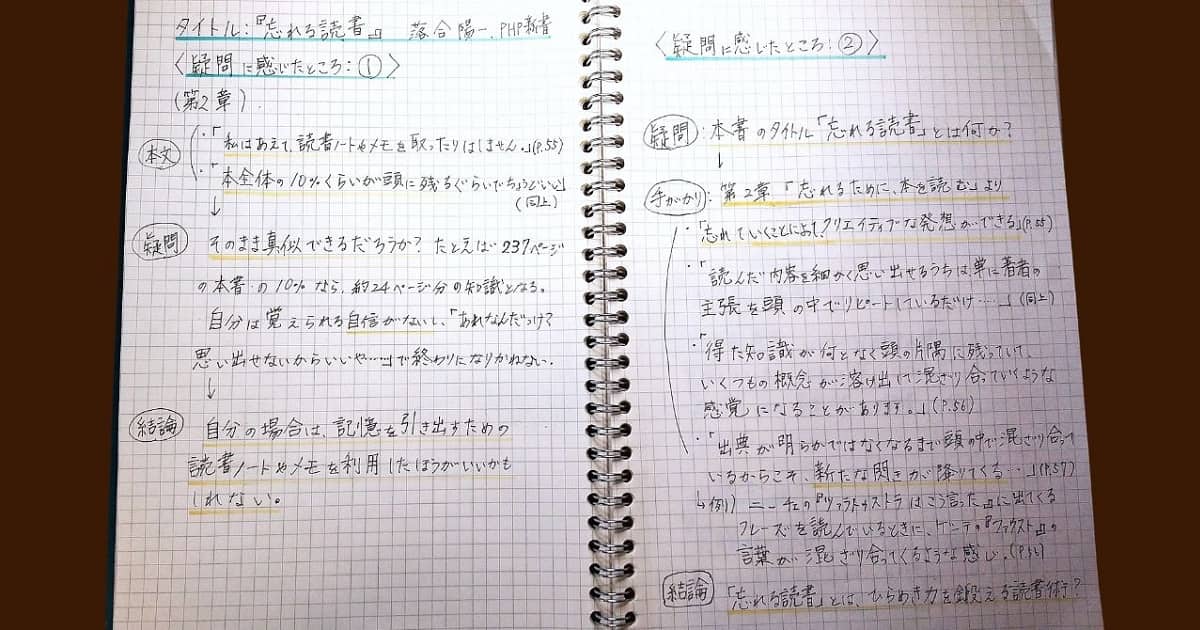 タイトル:『忘れる読書』 落合陽一、PHP新書
〈疑問に感じたところ:①〉
(第2章)
本文 ・「私はあえて、読書ノートやメモを取ったりはしません。」(P.55)
・「本全体の10%くらいが頭に残るぐらいでちょうどいい」
(同上)
↓
疑問 そのまま真似できるだろうか? たとえば237ページ
の本書の10%なら、約24ページ分の知識となる。
自分は覚えられる自信がないし、「あれなんだっけ?
思い出せないからいいや……」で終わりになりかねない。
↓
結論 自分の場合は、記憶を引き出すための
読書ノートやメモを利用したほうがいいかも
しれない。
〈疑問に感じたところ:②〉
疑問:本書のタイトル「忘れる読書」とは何か?
↓
手がかり:第2章「忘れるために、本を読む」より
・「忘れていくことによって、クリエイティブな発想ができる」(P.55)
・「読んだ内容を細かく思い出せるうちは単に著者の
主張を頭の中でリピートしているだけ……」(同上)
・「得た知識が何となく頭の片隅に残っていて、
いくつもの概念が溶け出して混ざり合っていくような
感覚になることがあります。」(P.56)
・「出典が明らかではなくなるまで頭の中で混ざり合って
いるからこそ、新たな閃きが降りてくる…」(P.57)
↳例) ニーチェの『ツァラトゥストラはこう言った』に出てくる
フレーズを読んでいるときに、ゲーテの『ファウスト』の
言葉が混ざり合ってくるような感じ。(P.56)
結論 「忘れる読書」とは、ひらめき力を鍛える読書術?